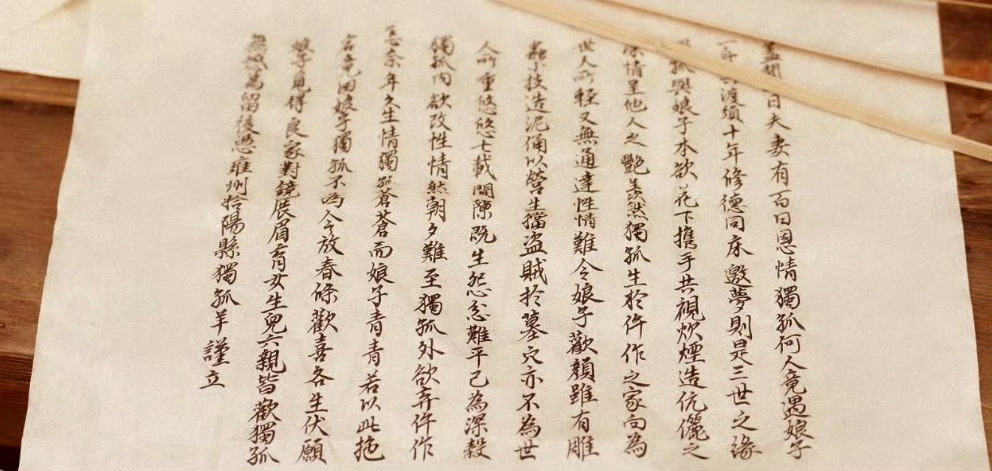 日夫妻有百日恩情獨孤何人竟遇娘子
渡須十年修德同床邀夢則是三世之緣
孤與娘子本欲花下攜手共視炊煙造伉儷之
情呈他人之艷羨然獨孤生於仵作之家向為
世人所輕又無通達性情難令娘子歡顏雖有雕
蟲小技造泥俑以營生擋盜賊於墓穴亦不為世
人所重悠悠七載間隙既生怨忿難平已為深穀
獨孤內欲改性情然朝夕難至獨孤外欲弃仵作
奈年久生情獨孤蒼蒼而娘子青青若以此拖
宕竟困娘子獨孤不為今放春條歡喜各生伏願
娘子覓得良家對鏡展眉育女生兒六親皆歡獨孤
無憾為留後憑雍州拾陽縣獨孤羊謹立